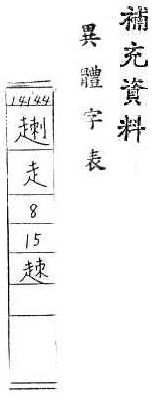 補充資料
異體字表
14144
走
8
15
趚